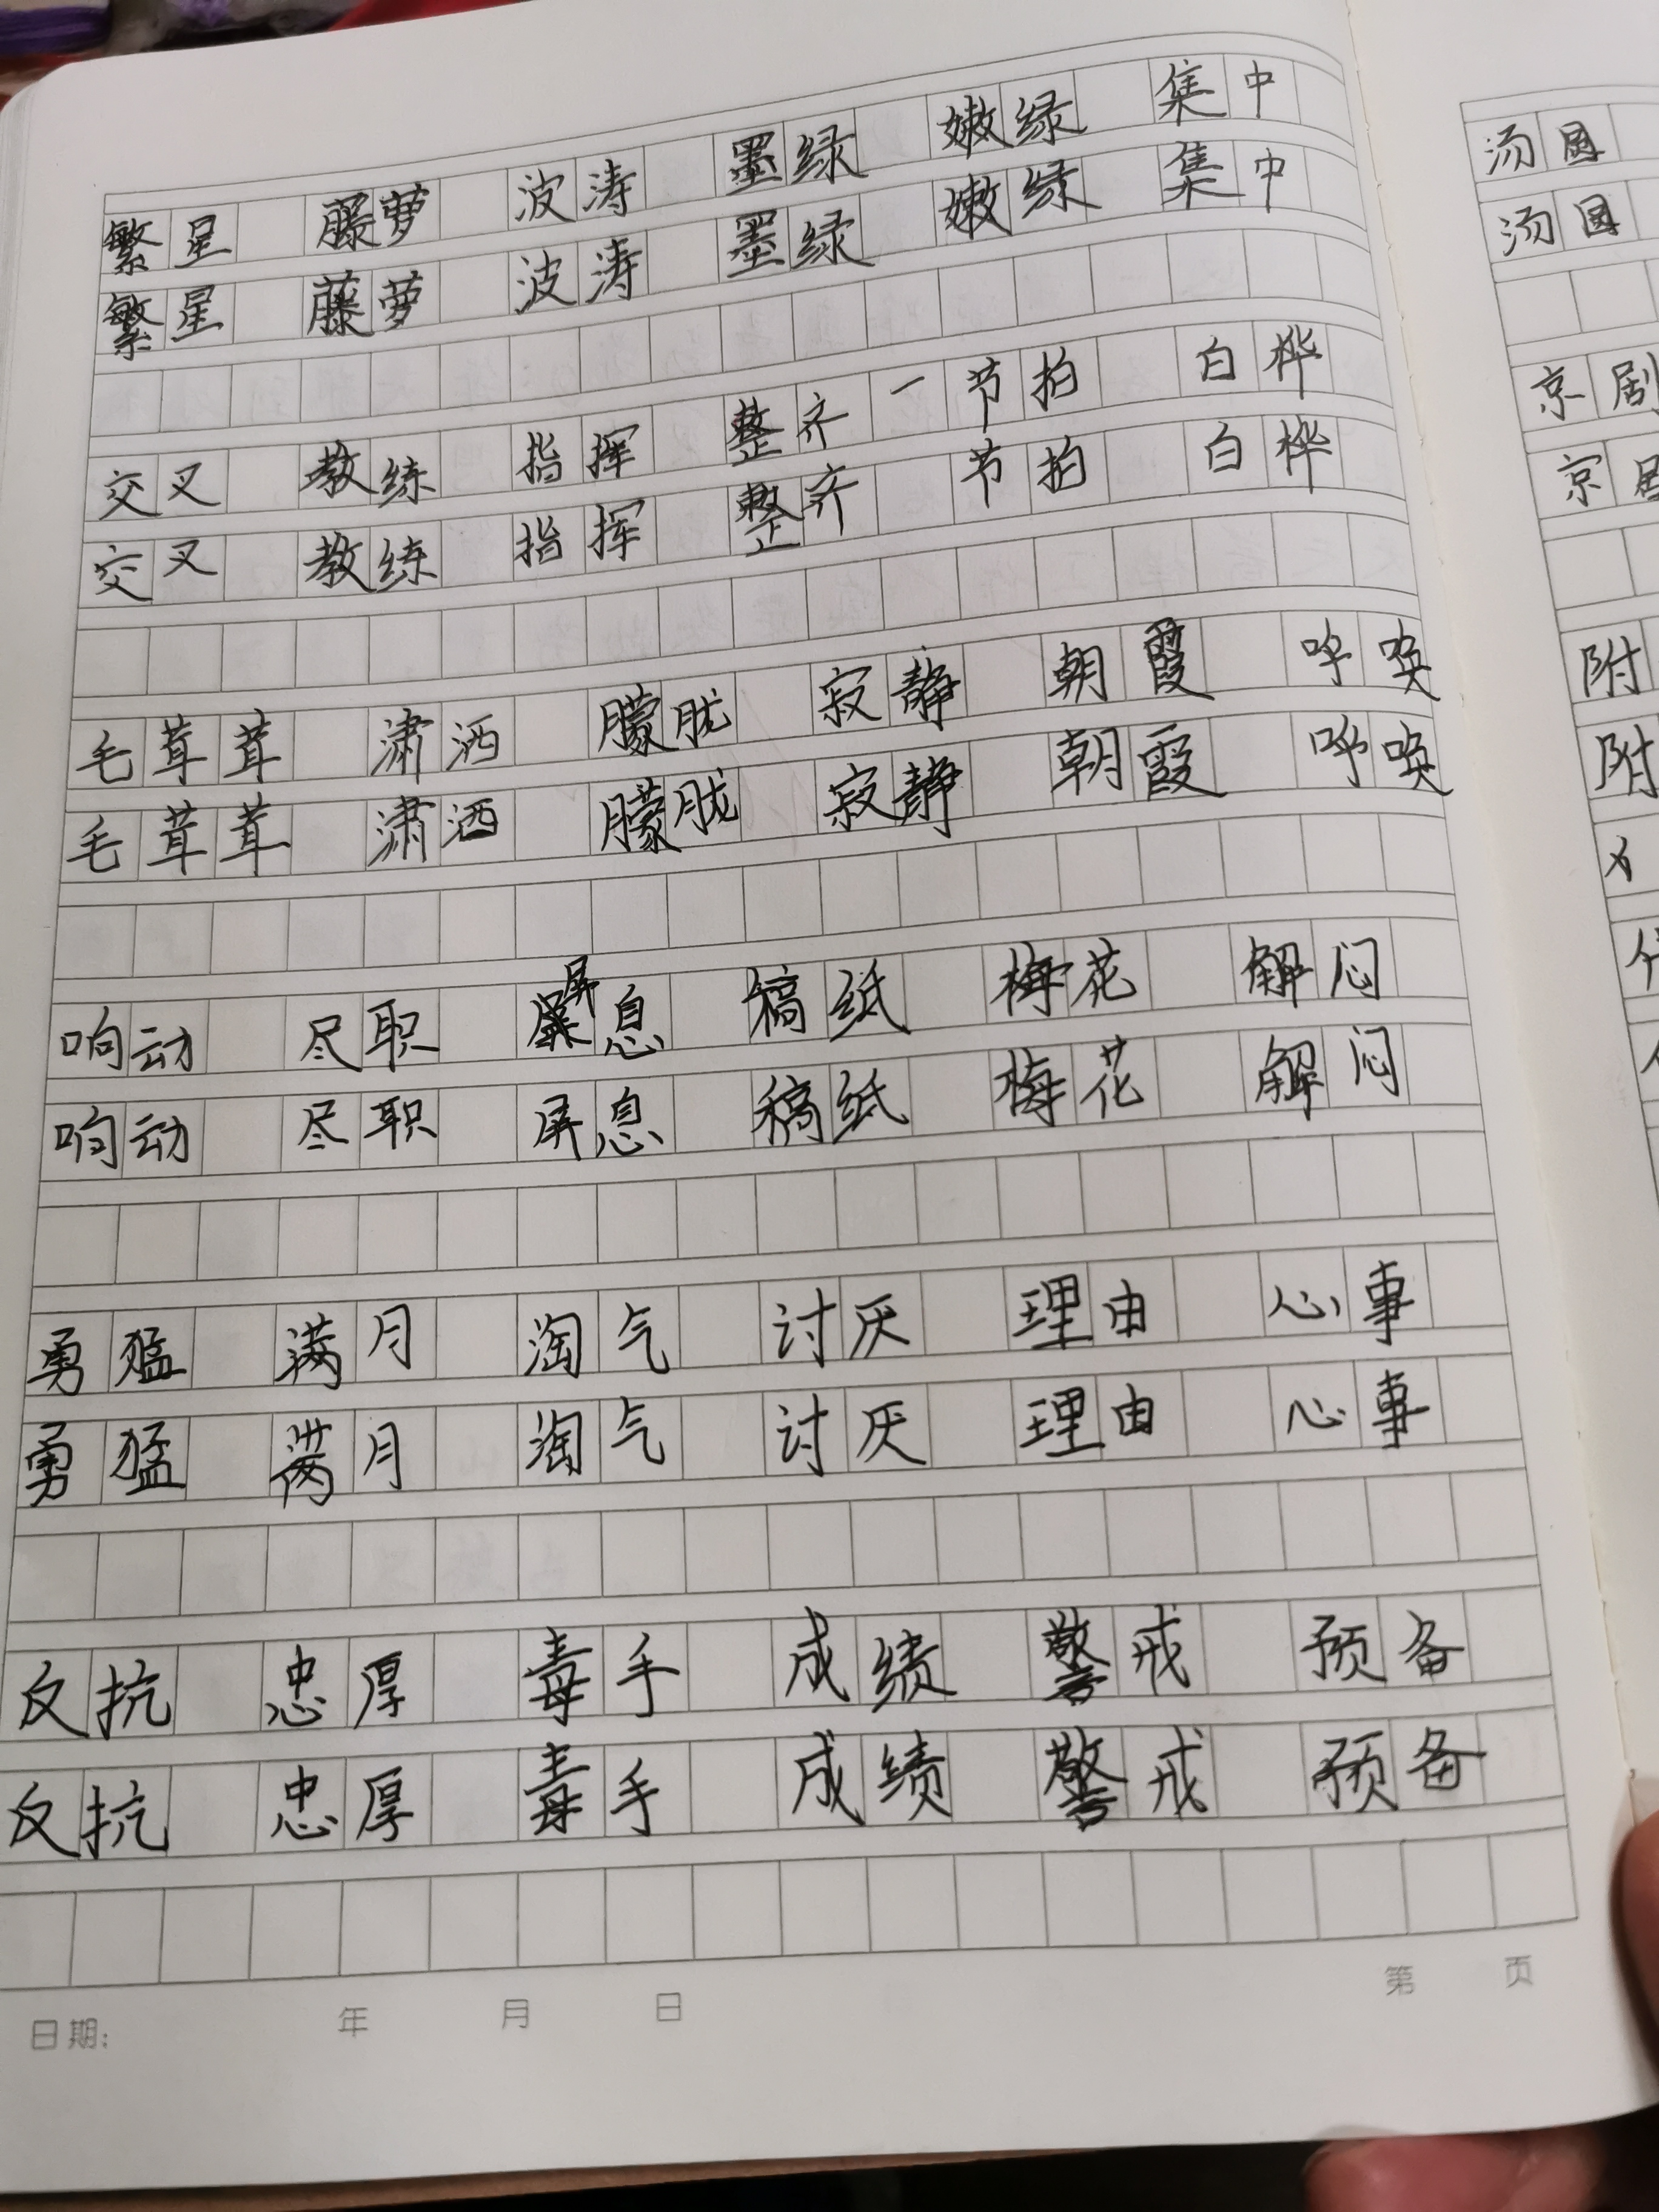 繁星 藤萝 波涛 墨绿 嫩绿 集中
繁星 藤萝 波涛 墨绿 嫩绿 集中
交叉 教练 指挥 整齐 一 节拍 白桦
交叉 教练 指挥 整齐 节拍 白桦
毛茸茸 潇洒 朦胧 寂静 朝霞 呼唤
毛茸茸 潇洒 朦胧 寂静 朝霞 呼唤
响动 尽职 屏息 稿纸 梅花 解闷
响动 尽职 屏息 稿纸 梅花 解闷
勇猛 满月 淘气 讨厌 理由 心事
勇猛 满月 淘气 讨厌 理由 心事
反抗 忠厚 毒手 成绩 警戒 预备
反抗 忠厚 毒手 成绩 警戒 预备
日期: 年 月 日 第 页
汤圆
汤圆
京剧
京
附
附